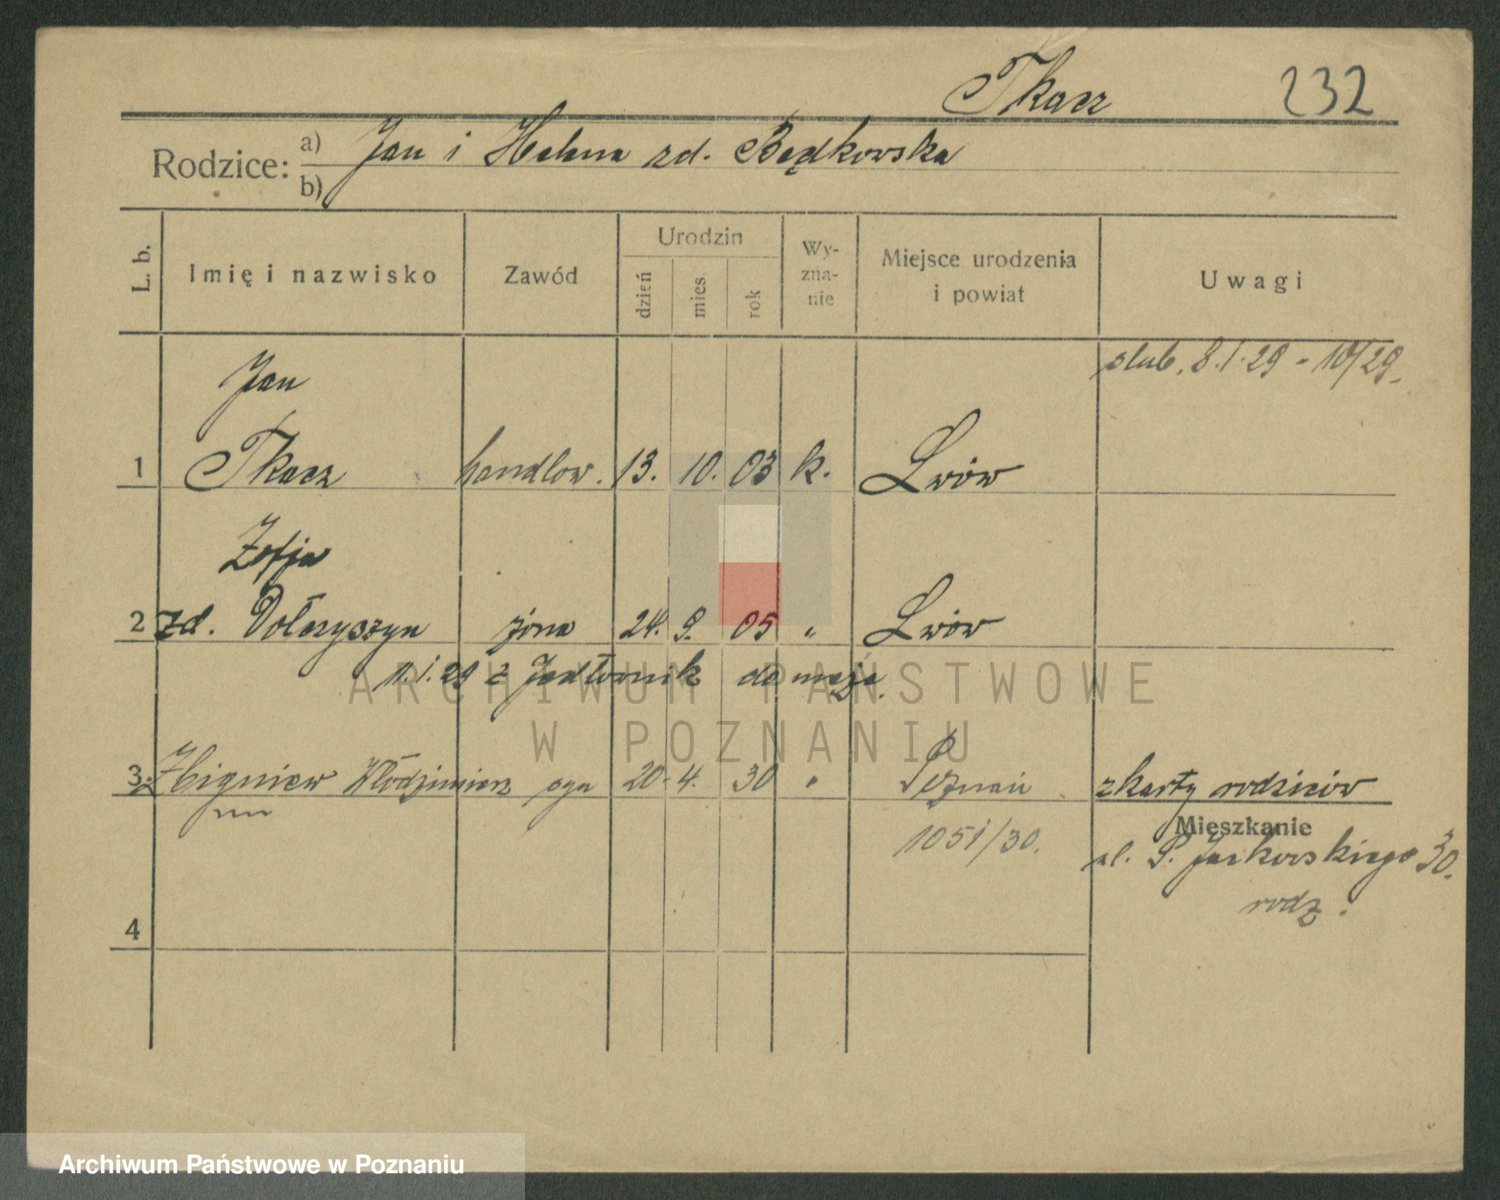 Tkacz 232
Rodzice: a) Jan i Helena zd. Będkowska
b)
L. b. Imię i nazwisko Zawód Urodzin dzień mies. rok Wy-zna-nie Miejsce urodzenia i powiat Uwagi
ślub. 8.I.29 - 10/29.
Jan
1 Tkacz handlow. 13. 10. 03 k. Lwów
Zofja
2 zd. Dołczyszyn żona 24. 9. 05 " Lwów
11.I.29 z Jedłownik do męża.
3 Zbigniew Włodzimierz syn 20. 4. 30 " Poznań z karty rodziców
1051/30.
Mieszkanie
ul. P. Jackowskiego 30.
rodz.
4
ARCHIWUM PAŃSTWOWE
W POZNANIU
Archiwum Państwowe w Poznaniu